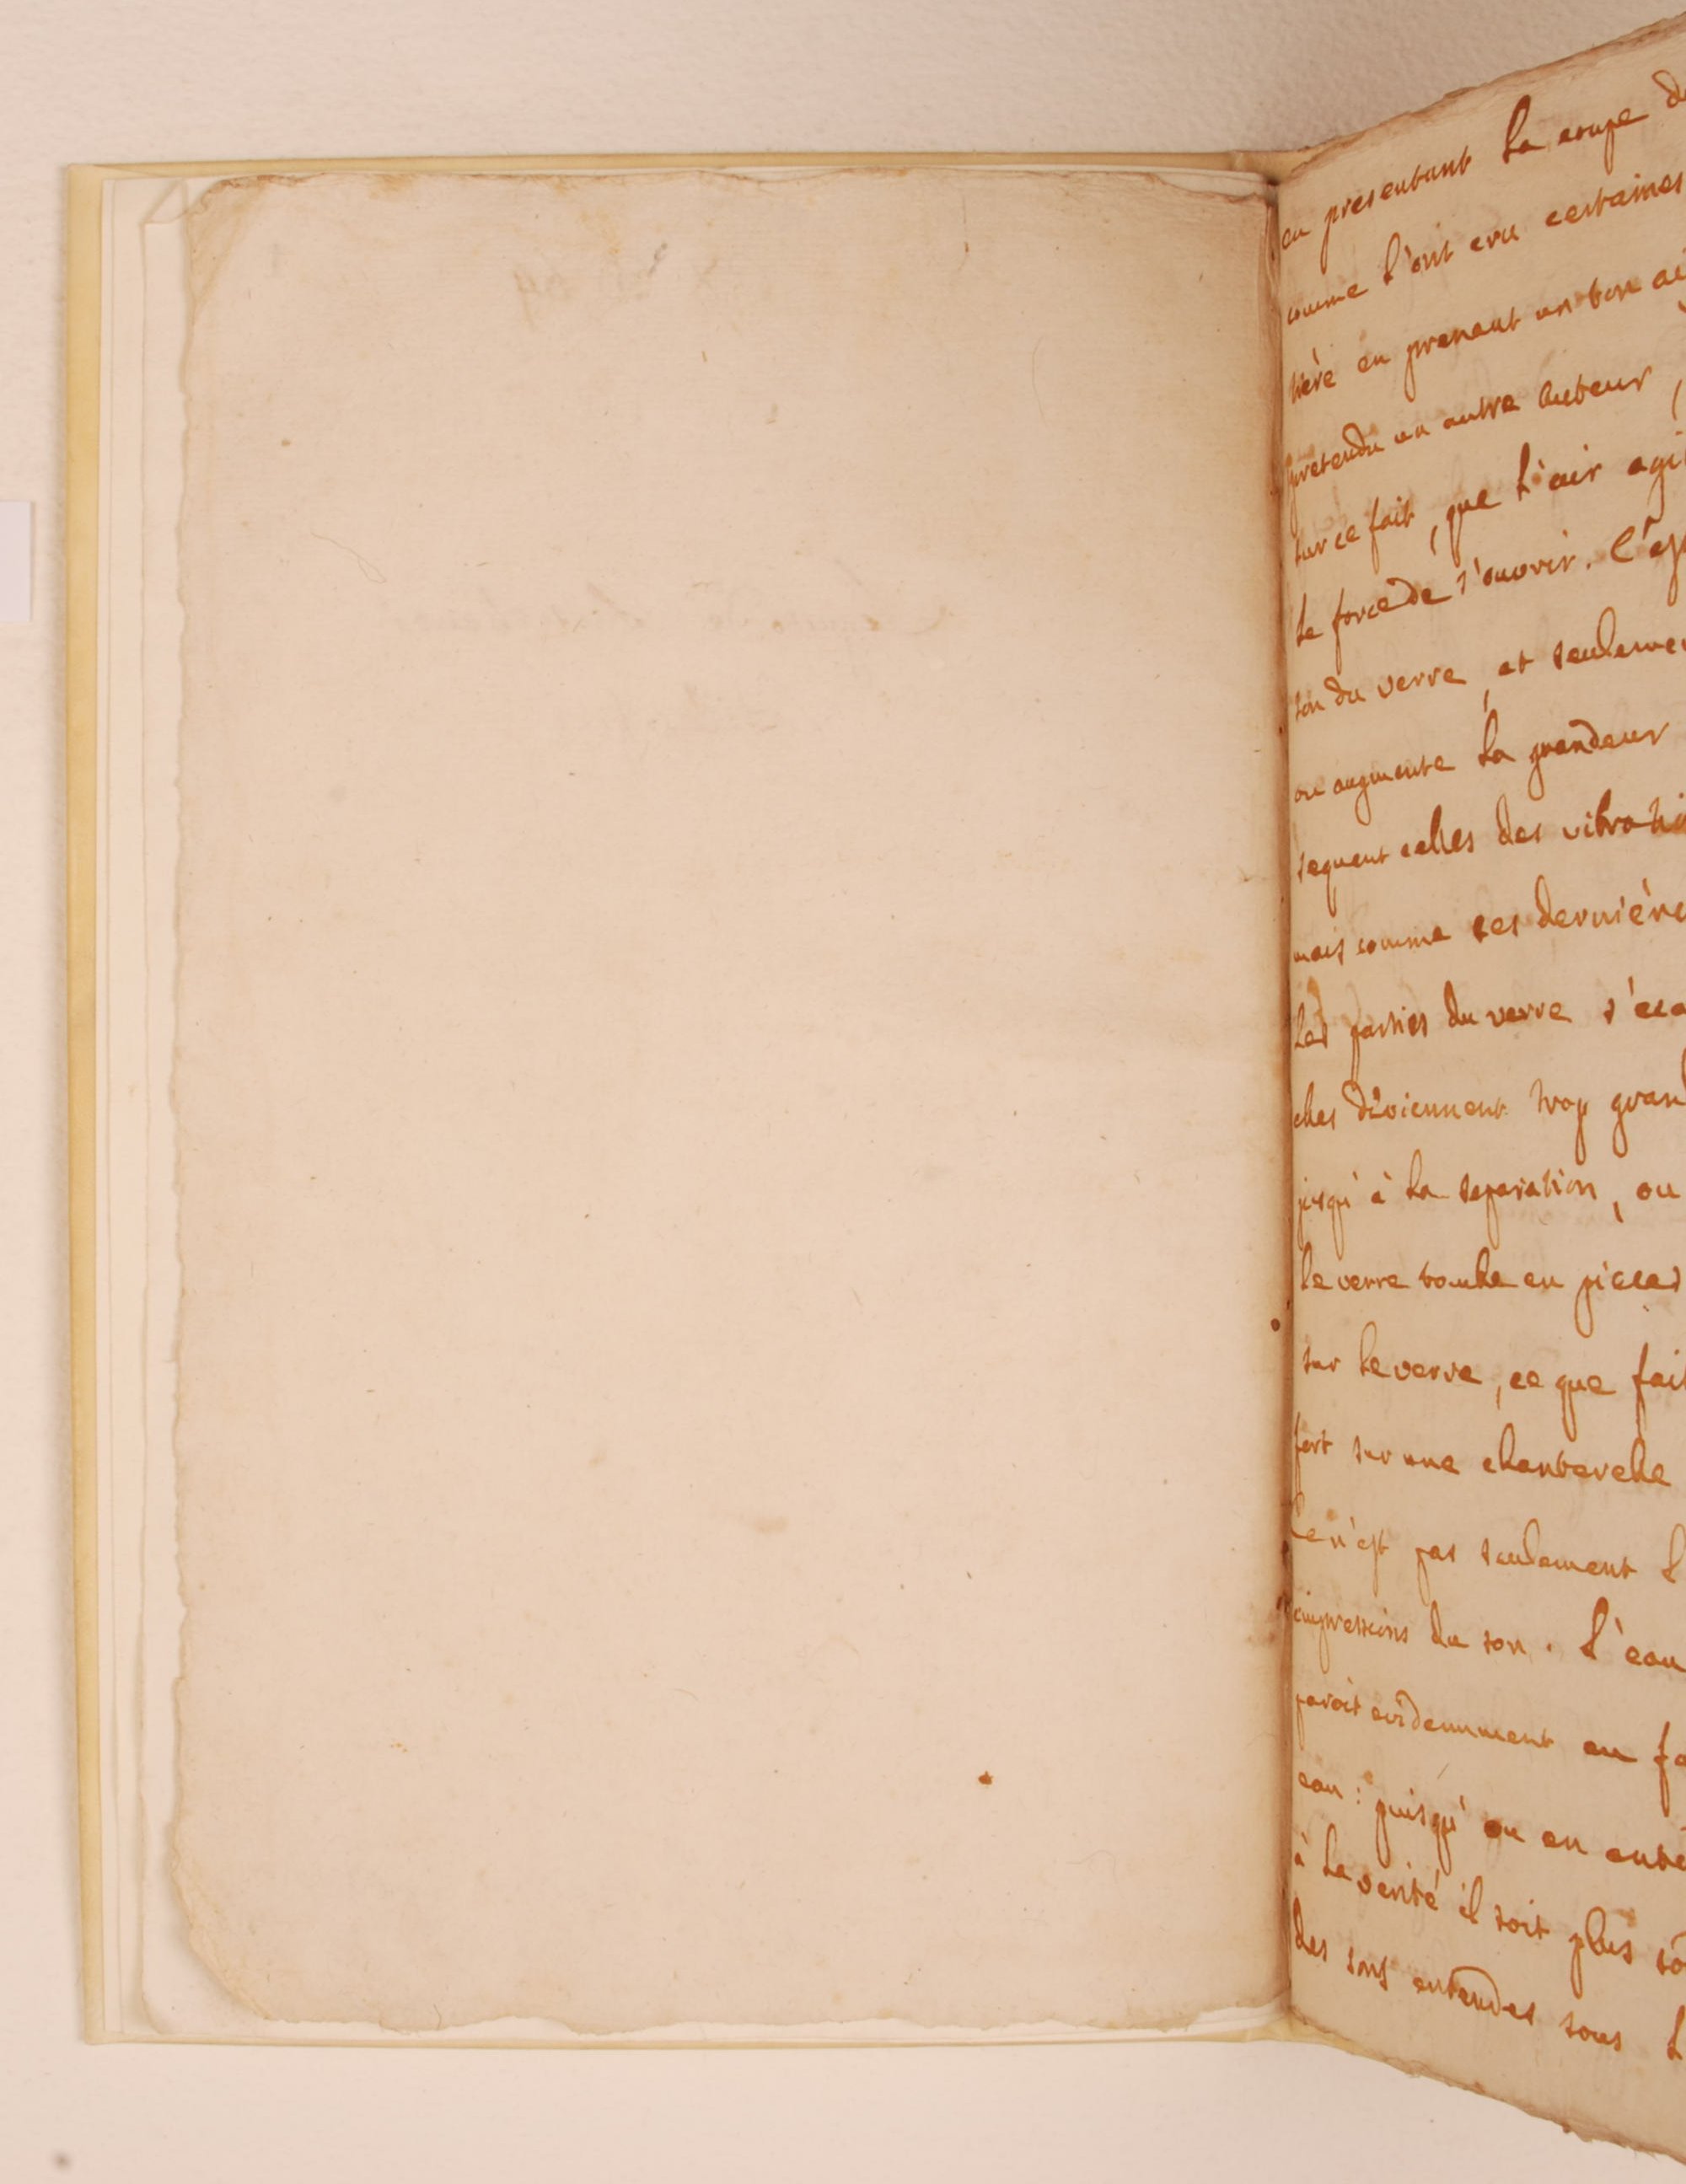 en presentant la coupe de
comme l'ont cru certaines
tière en prenant un bon ai
pretendu un autre auteur,
sur ce fait, que l'air agi
le force de s'ouvrir. C'est
son du verre, et seulemen
on augmente la grandeur
sequent celles des vibratio
mais comme ces dernière
les parties du verre s'éca
elles déviennent trop gran
jusqu'à la separation, ou
le verre tombe en pieces
sur le verre, ce que fait
fort sur une chanterelle
Ce n'est pas seulement l
impressions du son. L'eau
paroit evidemment en fa
eau: puisqu'on en ente
à la verité il soit plus so
des sons entendus sous l